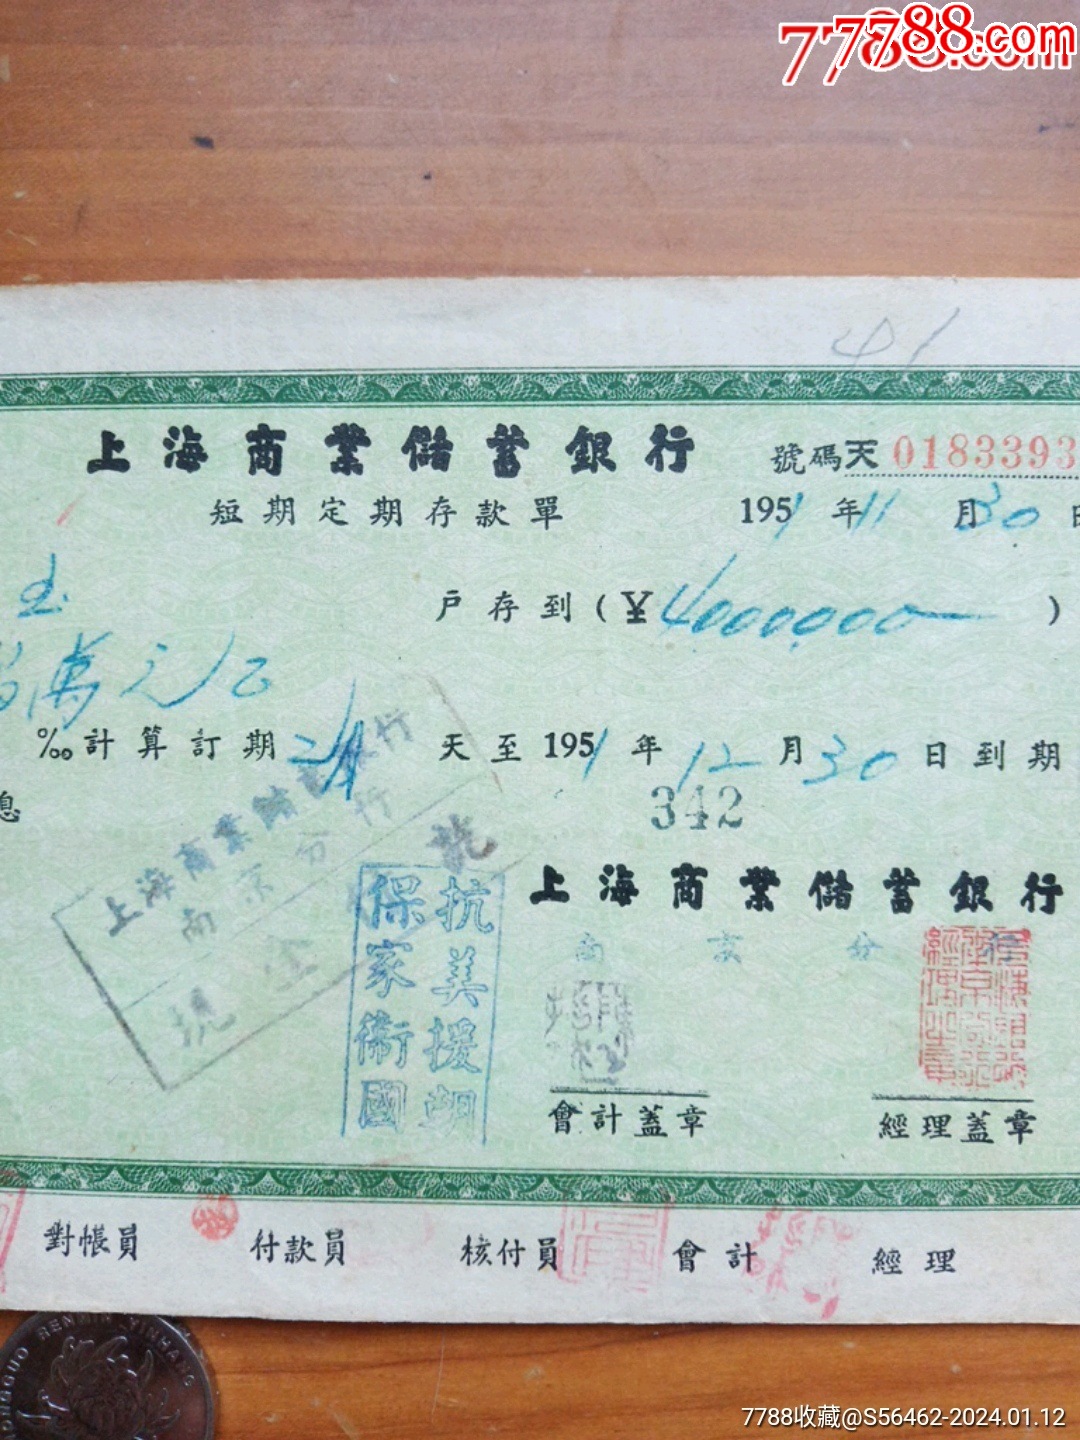 77788.com
41
上海商業儲蓄銀行
號碼天 0183393
短期定期存款單
1951年11月30日
戶存到(¥4000000)
萬元
‰計算訂期 天至1951年12月30日到期
息
342
上海商業儲蓄銀行
南京分行
現金
訖
抗美援朝
保家衛國
上海商業儲蓄銀行
南京分行
會計蓋章
經理蓋章
對帳員 付款員 核付員 會計 經理
RENMIN YINHANG
7788收藏@S56462-2024.01.12